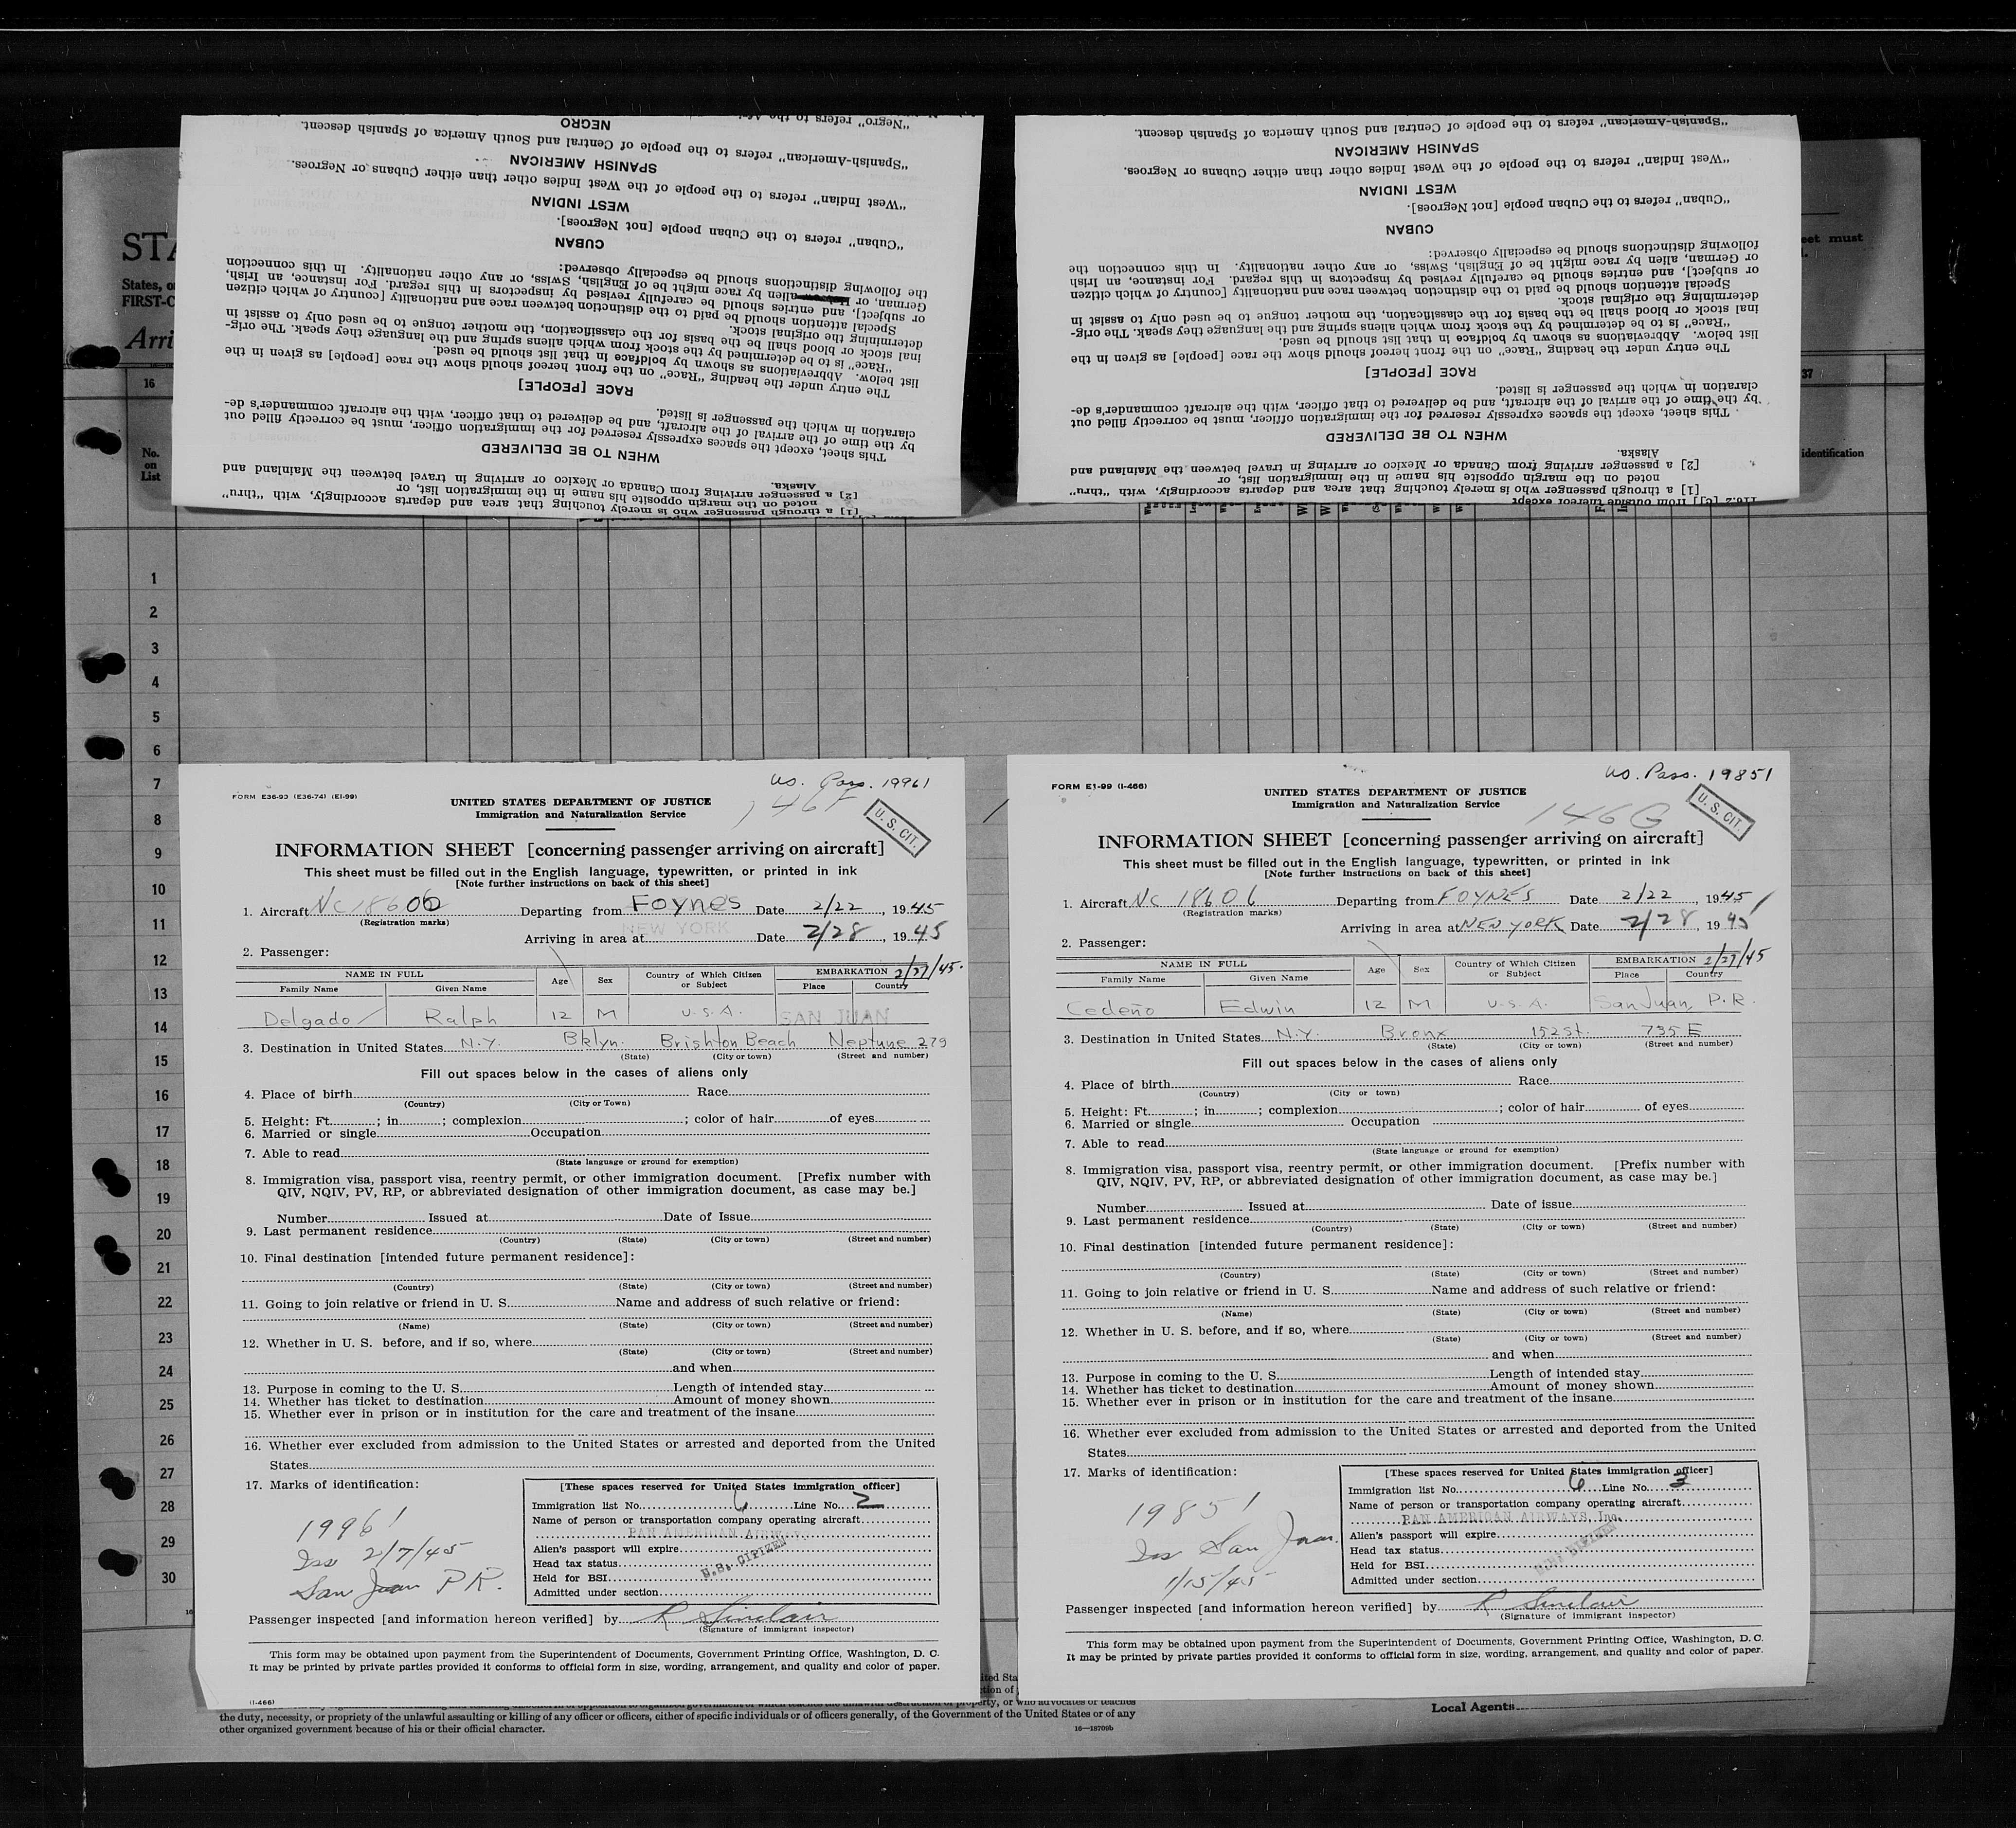 "Negro" refers to the
NEGRO
"Spanish-American" refers to the people of Central and South America of Spanish descent.
SPANISH AMERICAN
"West Indian" refers to the people of the West Indies other than either Cubans or Negroes.
WEST INDIAN
"Cuban" refers to the Cuban people [not Negroes].
CUBAN
the following distinctions should be especially observed:
German, or alien by race might be of English, Swiss, or any other nationality. In this connection
or subject], and entries should be carefully revised by inspectors in this regard. For instance, an Irish,
Special attention should be paid to the distinction between race and nationality [country of which citizen
determining the original stock.
inal stock or blood shall be the basis for the classification, the mother tongue to be used only to assist in
"Race" is to be determined by the stock from which aliens spring and the language they speak. The orig-
list below. Abbreviations as shown by boldface in that list should be used.
The entry under the heading "Race" on the front hereof should show the race [people] as given in the
RACE [PEOPLE]
claration in which the passenger is listed.
by the time of the arrival of the aircraft, and be delivered to that officer, with the aircraft commander's de-
This sheet, except the spaces expressly reserved for the immigration officer, must be correctly filled out
WHEN TO BE DELIVERED
Alaska.
[2] a passenger arriving from Canada or Mexico or arriving in travel between the Mainland and
noted on the margin opposite his name in the immigration list, or
[1] a through passenger who is merely touching that area and departs accordingly, with "thru"
"Spanish-American" refers to the people of Central and South America of Spanish descent.
SPANISH AMERICAN
"West Indian" refers to the people of the West Indies other than either Cubans or Negroes.
WEST INDIAN
"Cuban" refers to the Cuban people [not Negroes].
CUBAN
following distinctions should be especially observed:
or German, alien by race might be of English, Swiss, or any other nationality. In this connection the
or subject], and entries should be carefully revised by inspectors in this regard. For instance, an Irish
Special attention should be paid to the distinction between race and nationality [country of which citizen
determining the original stock.
inal stock or blood shall be the basis for the classification, the mother tongue to be used only to assist in
"Race" is to be determined by the stock from which aliens spring and the language they speak. The orig-
list below. Abbreviations as shown by boldface in that list should be used.
The entry under the heading "Race" on the front hereof should show the race [people] as given in the
RACE [PEOPLE]
claration in which the passenger is listed.
by the time of the arrival of the aircraft, and be delivered to that officer, with the aircraft commander's de-
This sheet, except the spaces expressly reserved for the immigration officer, must be correctly filled out
WHEN TO BE DELIVERED
Alaska.
[2] a passenger arriving from Canada or Mexico or arriving in travel between the Mainland and
noted on the margin opposite his name in the immigration list, or
[1] a through passenger who is merely touching that area and departs accordingly, with "thru"
116.2 [c]] from outside thereof except
STA
States, o
FIRST-C
Arri
16
No.
on
List
eet must
37
identification
1
2
3
4
5
6
7
8
9
10
11
12
13
14
15
16
17
18
19
20
21
22
23
24
25
26
27
28
29
30
US. Pass. 19961
FORM E36-99 (E36-74) (EI-99)
146F
U. S. CIT.
UNITED STATES DEPARTMENT OF JUSTICE
Immigration and Naturalization Service
INFORMATION SHEET [concerning passenger arriving on aircraft]
This sheet must be filled out in the English language, typewritten, or printed in ink
[Note further instructions on back of this sheet]
1. Aircraft NC 18606 Departing from Foynes Date 2/22, 1945
(Registration marks)
NEW YORK
Arriving in area at Date 2/28, 1945
2. Passenger:
NAME IN FULL Age Sex Country of Which Citizen or Subject EMBARKATION 2/27/45.
Family Name Given Name Place Country
Delgado Ralph 12 M U.S.A. SAN JUAN
3. Destination in United States N.Y. Bklyn. Brighton Beach Neptune 279
(State) (City or town) (Street and number)
Fill out spaces below in the cases of aliens only
4. Place of birth Race
(Country) (City or Town)
5. Height: Ft. ; in ; complexion ; color of hair of eyes
6. Married or single Occupation
7. Able to read
(State language or ground for exemption)
8. Immigration visa, passport visa, reentry permit, or other immigration document. [Prefix number with
QIV, NQIV, PV, RP, or abbreviated designation of other immigration document, as case may be.]
Number Issued at Date of Issue
9. Last permanent residence
(Country) (State) (City or town) (Street and number)
10. Final destination [intended future permanent residence]:
(Country) (State) (City or town) (Street and number)
11. Going to join relative or friend in U. S. Name and address of such relative or friend:
(Name) (State) (City or town) (Street and number)
12. Whether in U. S. before, and if so, where
(State) (City or town) (Street and number)
and when
13. Purpose in coming to the U. S. Length of intended stay
14. Whether has ticket to destination Amount of money shown
15. Whether ever in prison or in institution for the care and treatment of the insane
16. Whether ever excluded from admission to the United States or arrested and deported from the United
States
17. Marks of identification:
19961
Iss 2/7/45
San Juan P.R.
[These spaces reserved for United States immigration officer]
Immigration list No. 6 Line No. 2
Name of person or transportation company operating aircraft
PAN AMERICAN AIRWAYS,
Alien's passport will expire
Head tax status
U.S. CITIZEN
Held for BSI
Admitted under section
Passenger inspected [and information hereon verified] by R Sinclair
(Signature of immigrant inspector)
This form may be obtained upon payment from the Superintendent of Documents, Government Printing Office, Washington, D. C.
It may be printed by private parties provided it conforms to official form in size, wording, arrangement, and quality and color of paper.
(I-466)
US. Pass. 19851
FORM E1-99 (I-466)
146G
U. S. CIT.
UNITED STATES DEPARTMENT OF JUSTICE
Immigration and Naturalization Service
INFORMATION SHEET [concerning passenger arriving on aircraft]
This sheet must be filled out in the English language, typewritten, or printed in ink
[Note further instructions on back of this sheet]
1. Aircraft NC 18606 Departing from FOYNES Date 2/22, 1945
(Registration marks)
Arriving in area at NEW YORK Date 2/28, 1945
2. Passenger:
NAME IN FULL Age Sex Country of Which Citizen or Subject EMBARKATION 2/27/45
Family Name Given Name Place Country
Cedeño Edwin 12 M U.S.A. San Juan, P.R.
3. Destination in United States N.Y. Bronx 152 St. 735 E
(State) (City or town) (Street and number)
Fill out spaces below in the cases of aliens only
4. Place of birth Race
(Country) (City or town)
5. Height: Ft. ; in ; complexion ; color of hair of eyes
6. Married or single Occupation
7. Able to read
(State language or ground for exemption)
8. Immigration visa, passport visa, reentry permit, or other immigration document. [Prefix number with
QIV, NQIV, PV, RP, or abbreviated designation of other immigration document, as case may be.]
Number Issued at Date of issue
9. Last permanent residence
(Country) (State) (City or town) (Street and number)
10. Final destination [intended future permanent residence]:
(Country) (State) (City or town) (Street and number)
11. Going to join relative or friend in U. S. Name and address of such relative or friend:
(Name) (State) (City or town) (Street and number)
12. Whether in U. S. before, and if so, where
(State) (City or town) (Street and number)
and when
13. Purpose in coming to the U. S. Length of intended stay
14. Whether has ticket to destination Amount of money shown
15. Whether ever in prison or in institution for the care and treatment of the insane
16. Whether ever excluded from admission to the United States or arrested and deported from the United
States
17. Marks of identification:
19851
Iss San Juan.
1/15/45
[These spaces reserved for United States immigration officer]
Immigration list No. 6 Line No. 3
Name of person or transportation company operating aircraft
PAN AMERICAN AIRWAYS, Inc.
Alien's passport will expire
Head tax status
Held for BSI
Admitted under section
Passenger inspected [and information hereon verified] by R Sinclair
(Signature of immigrant inspector)
This form may be obtained upon payment from the Superintendent of Documents, Government Printing Office, Washington, D. C.
It may be printed by private parties provided it conforms to official form in size, wording, arrangement, and quality and color of paper.
property, or who advocates or teaches
the duty, necessity, or propriety of the unlawful assaulting or killing of any officer or officers, either of specific individuals or of officers generally, of the Government of the United States or of any
other organized government because of his or their official character.
16—18709b
Local Agents